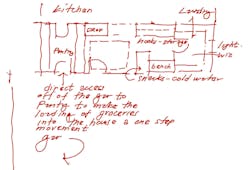 kitchen
Laundry
Pantry
bench
snacks-cold water
direct access
off of the gar to
Pantry to make the
loading of groceries
into the house a one step
movement
gar